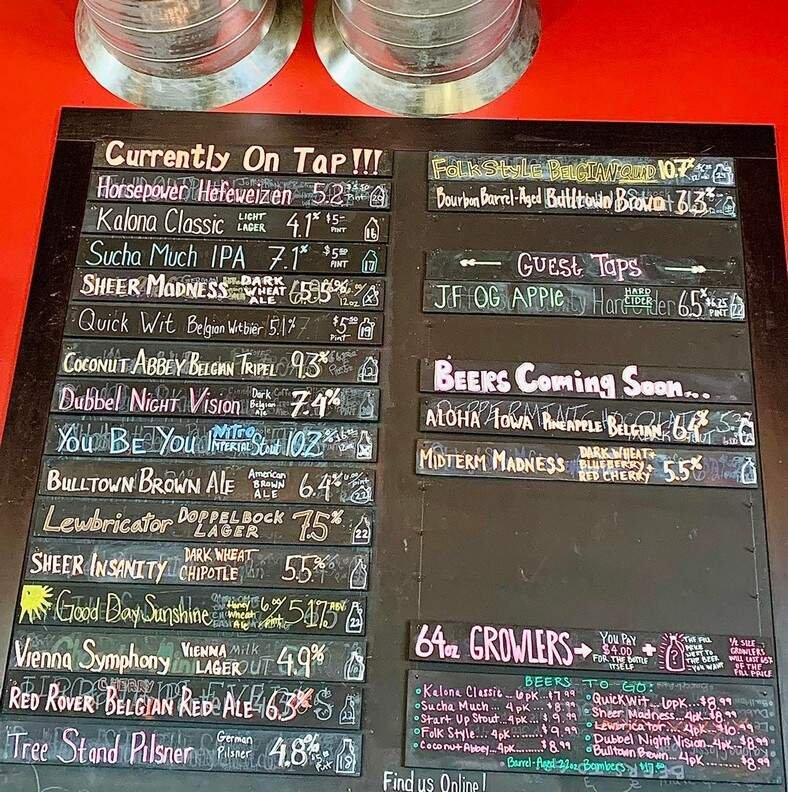 Currently On Tap!!!
Horsepower Hefeweizen 5.2%
Kalona Classic LIGHT LAGER 4.1% $5- PINT 16
Sucha Much IPA 7.1% $5.50 PINT 17
SHEER MADNESS DARK WHEAT ALE 5.5% 12oz
Quick Wit Belgian Witbier 5.1% $5.50 PINT 19
COCONUT ABBEY BELGIAN TRIPEL 9.3%
Dubbel Night Vision Dark Belgian Ale 7.4%
YOU BE YOU Nitro IMPERIAL Stout 10.2%
BULLTOWN BROWN ALE American BROWN ALE 6.4% 22
Lewbricator DOPPELBOCK LAGER 7.5% 22
SHEER INSANITY DARK WHEAT CHIPOTLE 5.5%
Good Day Sunshine Honey Wheat Ale 5.1% ABV 22
Vienna Symphony VIENNA LAGER 4.9%
RED ROVER CHERRY BELGIAN RED ALE 6.3%
Tree Stand Pilsner German Pilsner 4.8% 18
FOLKSTYLE BELGIAN QUAD 10.7%
Bourbon Barrel-Aged Bulltown Brown 6.3%
GUEST TAPS
JF OG APPLE HARD CIDER 6.5% $6.25 PINT 22
BEERS Coming Soon...
ALOHA IOWA PINEAPPLE BELGIAN 6.4%
MIDTERM MADNESS DARK WHEAT + BLUEBERRY + RED CHERRY 5.5%
64oz GROWLERS → YOU PAY $4.00 FOR THE BOTTLE ITSELF + THE FILL PRICE NEXT TO THE BEER YOU WANT
1/2 SIZE GROWLERS WILL COST 65% OF THE FILL PRICE
BEERS TO GO:
Kalona Classic... 6pk... $7.99
Sucha Much... 4pk... $8.99
Start Up Stout.. 4pk... $9.99
Folk Style... 4pk... $9.99
Coconut Abbey.. 4pk... $8.99
Quick Wit... 6pk... $8.99
Sheer Madness... 4pk... $8.99
Lewbricator... 4pk... $10.99
Dubbel Night Vision.. 4pk.. $8.99
Bulltown Brown... 4pk... $8.99
Barrel-Aged 22oz Bombers $17.50
Find us Online!